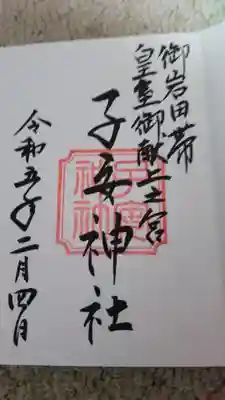 御岩田帯
皇室御献上之宮
子安神社
令和五年二月四日